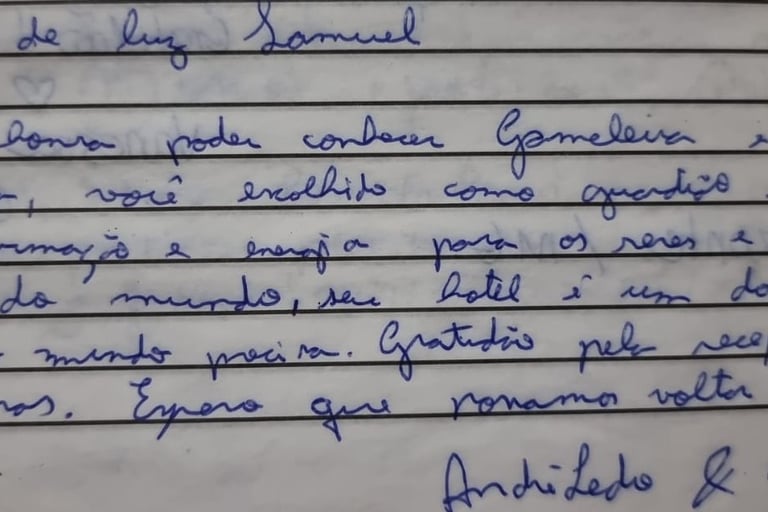 de luz Samuel
honra poder conhecer Gameleira e
você escolhido como guardião
rmação e energia para os seres e
do mundo, seu hotel é um do
mundo precisa. Gratidão pela recep
ras. Espero que possamos voltar
André Ledo &